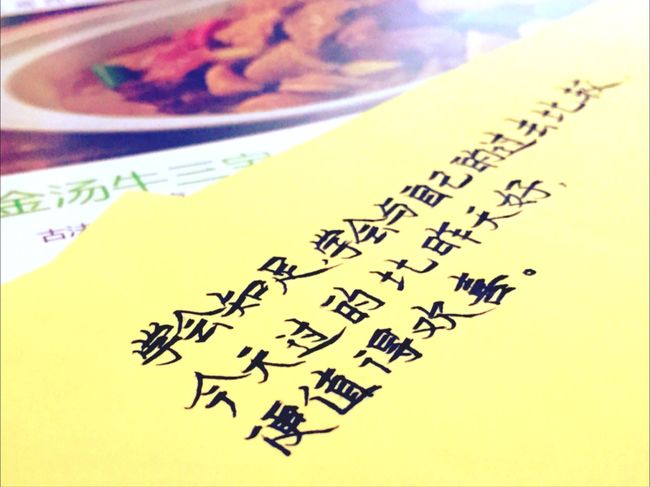 金汤牛三宝
古法
学会知足,学会与自己的过去比较
今天过的比昨天好,
便值得欢喜。